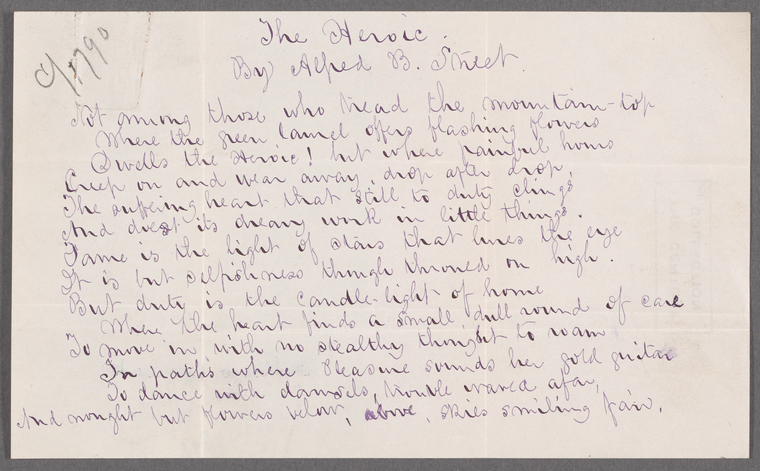 C/1790
The Heroic.
By Alfred B. Street.
Not among those who tread the mountain-top
Where the green laurel offers flashing flowers
Dwells the Heroic! but where painful hours
Creep on and wear away, drop after drop,
The suffering heart that still to duty clings
And doest its dreary work in little things.
Fame is the light of stars that lures the eye
It is but selfishness though throned on high.
But duty is the candle-light of home
Where the heart finds a small dull round of care
To move in with no stealthy thought to roam
In paths where Pleasure sounds her gold guitar
To dance with damsels, trouble waved afar,
And nought but flowers below, above, skies smiling fair.